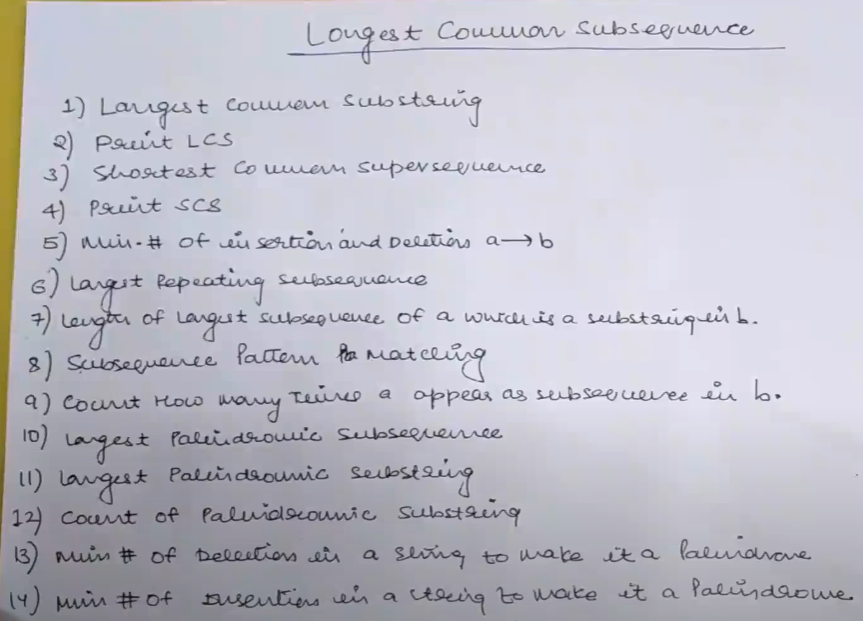 Longest Common Subsequence
1) Largest Common Substring
2) Print LCS
3) Shortest Common Supersequence
4) Print SCS
5) Min-# of insertion and Deletion a→b
6) Largest Repeating Subsequence
7) Length of Largest subsequence of a which is a substring in b.
8) Subsequence Pattern Matching
9) Count How many Times a appear as subsequence in b.
10) Largest Palindromic Subsequence
11) Largest Palindromic Substring
12) Count of Palindromic Substring
13) Min # of Deletion in a string to make it a Palindrome
14) Min # of Insertion in a string to make it a Palindrome